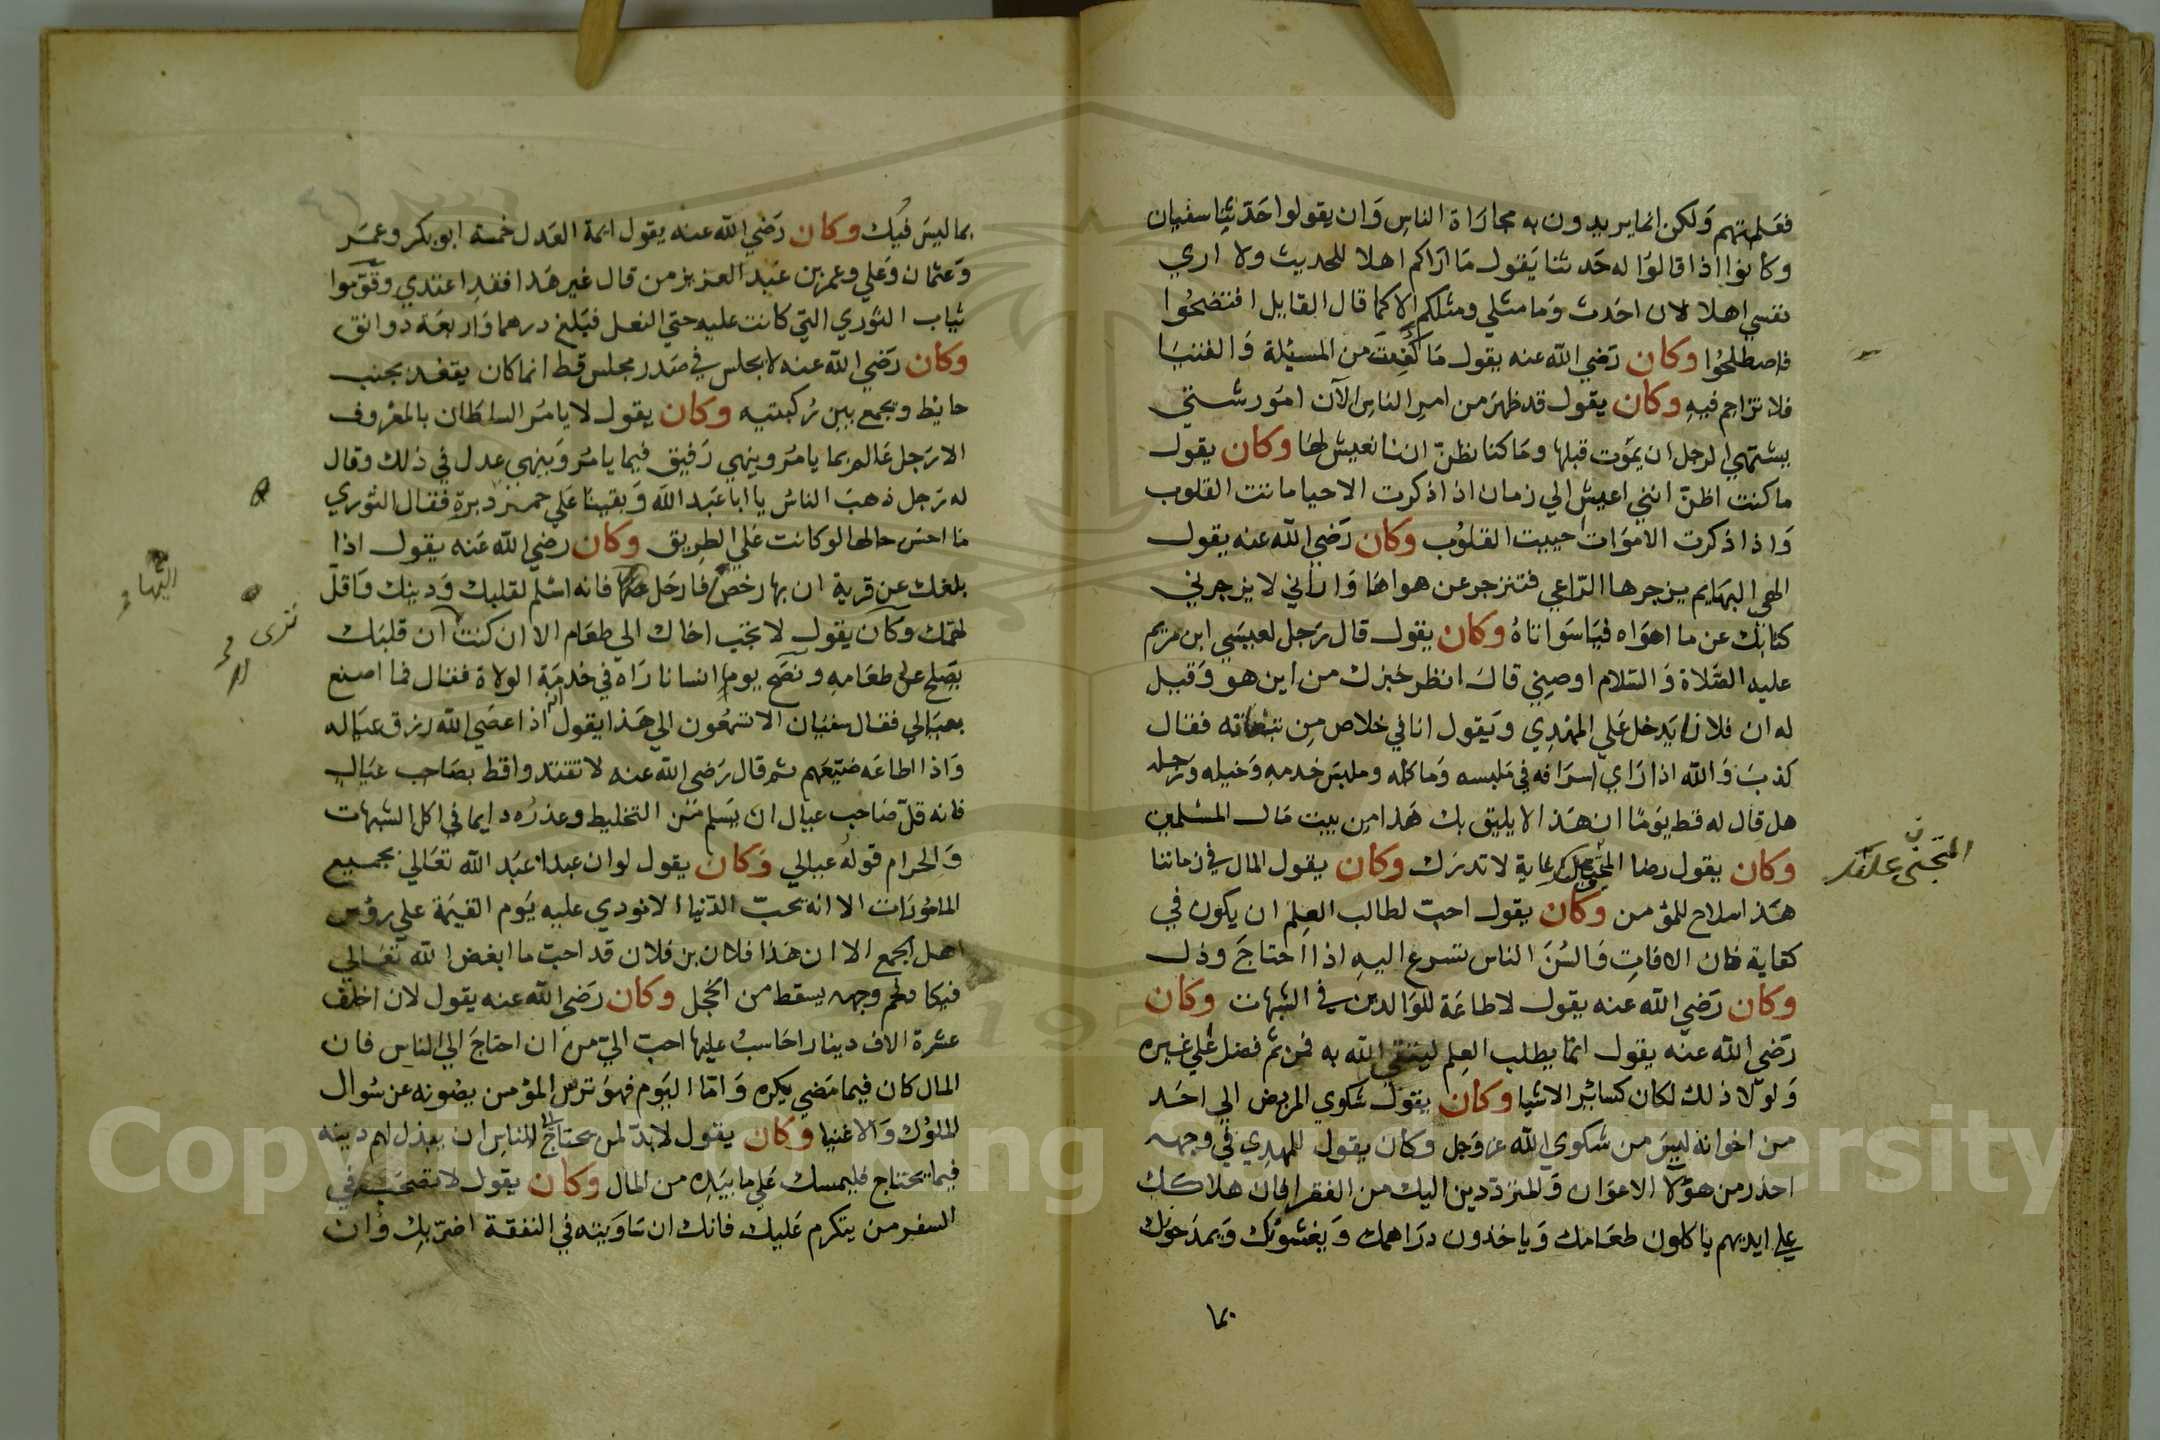 فعلمتهم ولكن انما يريدون به مجاراة الناس وان يقولوا حدثنا سفيان
وكانوا اذا قالوا له حدثنا يقول ما اراكم اهلا للحديث ولا اري
نفسي اهلا لان احدث وما مثلي ومثلكم الا كما قال القايل افتضحوا
فاصطلحوا وكان رضي الله عنه يقول ما كفيت من المسيلة والفتيا
فلا تزاحم فيه وكان يقول قد ظهر من امر الناس الآن امور شتي
يشتهي الرجل ان يموت قبلها وما كنا نظن اننا نعيش لها وكان يقول
ما كنت اظن انني اعيش الي زمان اذا ذكرت الاحيا ماتت القلوب
واذا ذكرت الاموات حييت القلوب وكان رضي الله عنه يقول
الهي البهايم يزجرها الراعي فتنزجر عن هواها واراني لا يزجرني
كتابك عن ما اهواه فياسواتاه وكان يقول قال رجل لعيسي ابن مريم
عليه الصلاة والسلام اوصيني قال انظر خبزك من اين هو وقيل
له ان فلانا يدخل علي المهدي ويقول انا في خلاص من تبعاته فقال
كذب والله اذا راي اسرافه في ملبسه وماكله وملبس خدمه وخيله ورجله
هل قال له قط يوما ان هذا لا يليق بك هذا من بيت مال المسلمين
وكان يقول رضا المتجني عليك غاية لا تدرك وكان يقول المال في زماننا
هذا سلاح للمؤمن وكان يقول احب لطالب العلم ان يكون في
كفاية فان الافات والسن الناس تسرع اليه اذا احتاج وذل
وكان رضي الله عنه يقول لا طاعة للوالدين في الشبهات وكان
رضي الله عنه يقول انما يطلب العلم ليتقي الله به فمن ثم فضل علي غيره
ولولا ذلك لكان كسائر الاشيا وكان يقول شكوي المريض الي احد
من اخوانه ليس من شكوي الله عز وجل وكان يقول للمهدي في وجهه
احذر من هؤلا الاعوان والمترددين اليك من الفقرا فان هلاكك
علي ايديهم ياكلون طعامك وياخذون دراهمك ويغشونك ويمدحونك
بما
المتجني عليك
بما ليس فيك وكان رضي الله عنه يقول ايمة العدل خمسة ابو بكر وعمر
وعثمان وعلي وعمر بن عبد العزيز من قال غير هذا فقد اعتدي وقوموا
ثياب الثوري التي كانت عليه حتي النعل فبلغ درهما واربعة دوانق
وكان رضي الله عنه لا يجلس في صدر مجلس قط انما كان يقعد بجنب
حايط ويجمع بين ركبتيه وكان يقول لا يامر السلطان بالمعروف
الا رجل عالم بما يامر وينهي رفيق فيما يامر وينهي عدل في ذلك وقال
له رجل ذهب الناس يا ابا عبد الله وبقينا علي حمر دبرة فقال الثوري
ما احسن حالها لو كانت علي الطريق وكان رضي الله عنه يقول اذا
بلغك عن قرية ان بها رخص فارحل فانه اسلم لقلبك ودينك واقل
لهمك وكان يقول لا تجب اخاك الي طعام الا ان كنت ان قلبك
يصلح علي طعامه ونصح يوما انسانا راه في خدمة الولاة فقال فما اصنع
بعيالي فقال سفيان الا تسمعون الي هذا يقول انه اذا عصي الله رزق عياله
واذا اطاعه ضيعهم ثم قال رضي الله عنه لا تقتدوا قط بصاحب عيال
فانه قل صاحب عيال ان يسلم من التخليط وعذره دايما في اكل الشبهات
والحرام قوله عيالي وكان يقول لو ان عبدا عبد الله تعالي بجميع
المامورات الا انه يحب الدنيا الا نودي عليه يوم القيمة علي رؤس
اهل الجمع الا ان هذا فلان بن فلان قد احب ما ابغض الله تعالي
فيكاد لحم وجهه يسقط من الخجل وكان رضي الله عنه يقول لان اخلف
عشرة الاف دينار احاسب عليها احب الي من ان احتاج الي الناس فان
المال كان فيما مضي يكره واما اليوم فهو ترس المؤمن يصونه عن سوال
الملوك والاغنيا وكان يقول لا بد لمن يحتاج الي الناس ان يبذل لهم دينه
فيما يحتاج فليمسك علي ما بيده من المال وكان يقول لا تصحب في
السفر من يتكرم عليك فانك ان ساويته في النفقة اضر بك وان